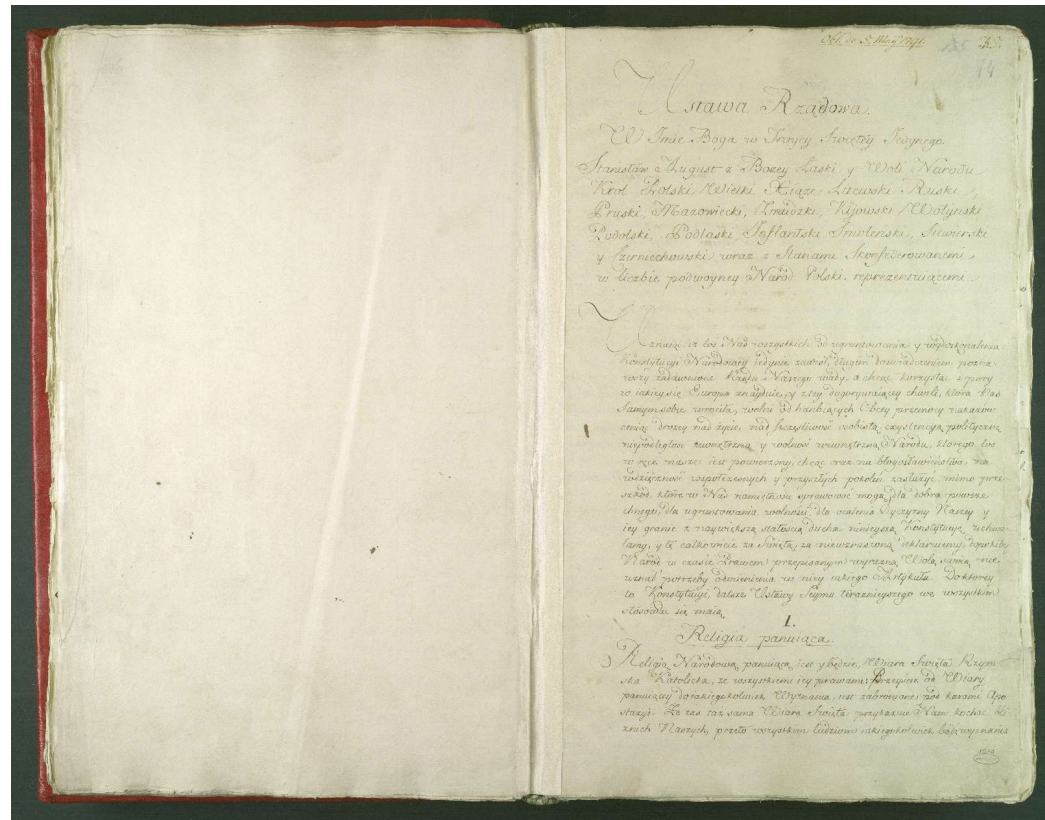 Obl. de 5. Maij 1791.
Ustawa Rządowa.
W Imie Boga w Troycy Swiętey Jedynego.
Stanisław August z Bozey Łaski y Woli Narodu
Krol Polski Wielki Xiąze Litewski Ruski
Pruski, Mazowiecki, Zmudzki, Kijowski Wołyński
Podolski, Podlaski, Inflantski Smolenski, Siewierski
y Czerniechowski wraz z Stanami Skonfederowanemi
w liczbie podwoyney Naród Polski reprezentuiącemi.
Uznaiąc, iz los Nas wszystkich od ugruntowania y wydoskonalenia
Konstytucyi Narodowey iedynie zawisł, długim doswiadczeniem pozna-
wszy zadawnione Rządu Naszego wady, a chcąc korzystać z pory
w iakiey się Europa znayduie, y z tey dogorywaiącey chwili, która Nas
samym sobie wrociła, wolni od hanbiących Obcey przemocy nakazow
ceniąc drozey nad zycie, nad szczęsliwosc osobistą exystencyą polityczną
niepodległosc zewnętrzną y wolnosc wewnętrzną Narodu, ktorego los
w ręce nasze iest powierzony, chcąc oraz na błogosławieństwo, na
wdzięcznosc wspołczesnych y przyszłych pokoleń zasłuzyc, mimo prze-
szkod, ktore w Nas namiętnosci sprawowac mogą, dla dobra powsze-
chnego, dla ugruntowania wolnosci, dla ocalenia Oyczyzny Naszey y
iey granic z naywiększą stałoscią ducha ninieyszą Konstytucyę uchwa-
lamy, y tę całkowicie za swiętą, za niewzruszoną deklaruiemy, dopokiby
Naród w czasie Prawem przepisanym wyrazną Wolą swoią nie
uznał potrzeby odmienienia w niey iakiego Artykułu. Do ktorey
to Konstytucyi, dalsze Ustawy Seymu teraznieyszego we wszystkim
stosowac się maią.
I.
Religia panuiąca.
Religią Narodową panuiącą iest y będzie Wiara Swięta Rzym-
ska Katolicka, ze wszystkiemi iey prawami. Przeyscie od Wiary
panuiącey do iakiegokolwiek Wyznania, iest zabronione pod karami Apo-
stazyi. Ze zas taz sama Wiara Swięta przykazuie Nam kochac bli-
znich Naszych, przeto wszystkim ludziom iakiegokolwiek bądz wyznania